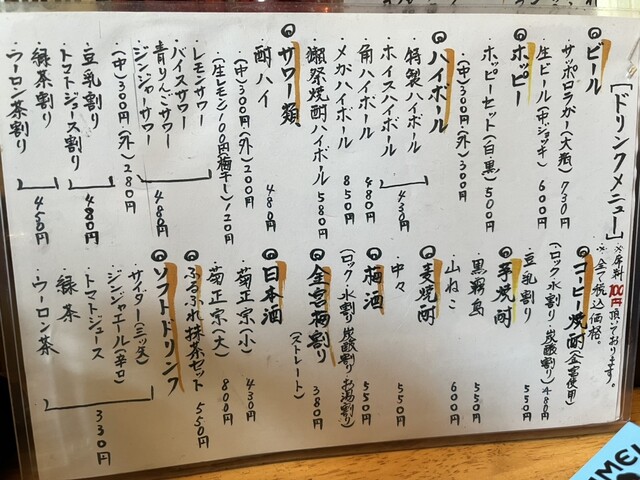 [ドリンクメニュー]
※席料100円頂いております。
※全て税込価格。
ビール
・サッポロラガー(大瓶) 730円
・生ビール(中ジョッキ) 600円
ホッピー
・ホッピーセット(白黒) 500円
・(中)300円(外)300円
ハイボール
・特製ハイボール
・ホイスハイボール
430円
・角ハイボール 480円
・メガハイボール 850円
・獺祭焼酎ハイボール 580円
サワー類
・酎ハイ 480円
・(中)300円(外)200円
・(生レモン)100円(梅干し)120円
・レモンサワー
・バイスサワー
・青りんごサワー
・ジンジャーサワー
480円
・(中)300円(外)280円
・豆乳割り
・トマトジュース割り
480円
・緑茶割り
・ウーロン茶割り
450円
コーヒー焼酎(金宮使用)
(ロック・水割り・炭酸割り)480円
・豆乳割り 550円
芋焼酎
・黒霧島 550円
・山ねこ 600円
麦焼酎
・中々 550円
梅酒 550円
(ロック・水割り・炭酸割り・お湯割り)
金宮梅割り 380円
(ストレート)
日本酒
・菊正宗(小) 430円
・菊正宗(大) 800円
ふるふれ抹茶セット 550円
ソフトドリンク
・サイダー(三ツ矢)
・ジンジャエール(辛口)
・トマトジュース
・緑茶
・ウーロン茶
330円